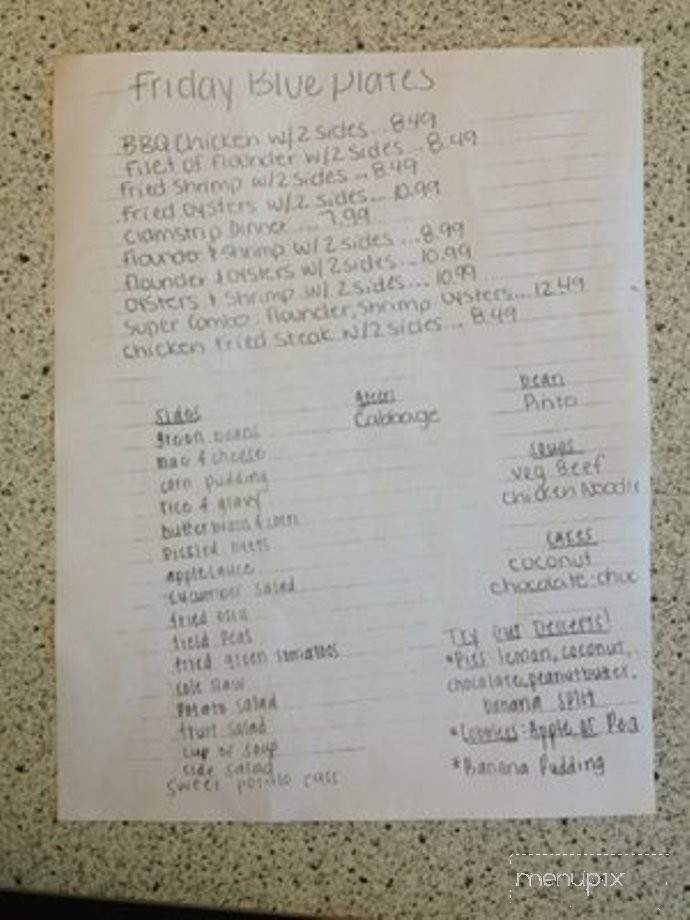 Friday Blue Plates
BBQ Chicken w/2 sides... 8.49
Filet of flounder w/2 sides... 8.49
Fried Shrimp w/2 sides... 8.49
Fried Oysters w/2 sides... 10.99
Clamstrip Dinner.... 7.99
flounder & shrimp w/2 sides ... 8.99
flounder & oysters w/2 sides... 10.99
Oysters & Shrimp w/2 sides.... 10.99
Super Combo flounder, shrimp, Oysters.... 12.49
Chicken fried Steak w/2 sides... 8.49
Sides
green beans
mac & cheese
corn pudding
rice & gravy
butterbeans & corn
pickled beets
applesauce
cucumber salad
fried okra
field peas
fried green tomatoes
cole slaw
potato salad
fruit salad
cup of soup
side salad
sweet potato cass
green
Cabbage
bean
Pinto
soups
veg Beef
chicken Noodle
cakes
coconut
chocolate-choc
Try our Desserts!
*Pies lemon, coconut,
chocolate, peanutbutter,
banana split
*Cobblers: Apple or Pea
*Banana Pudding
menupix